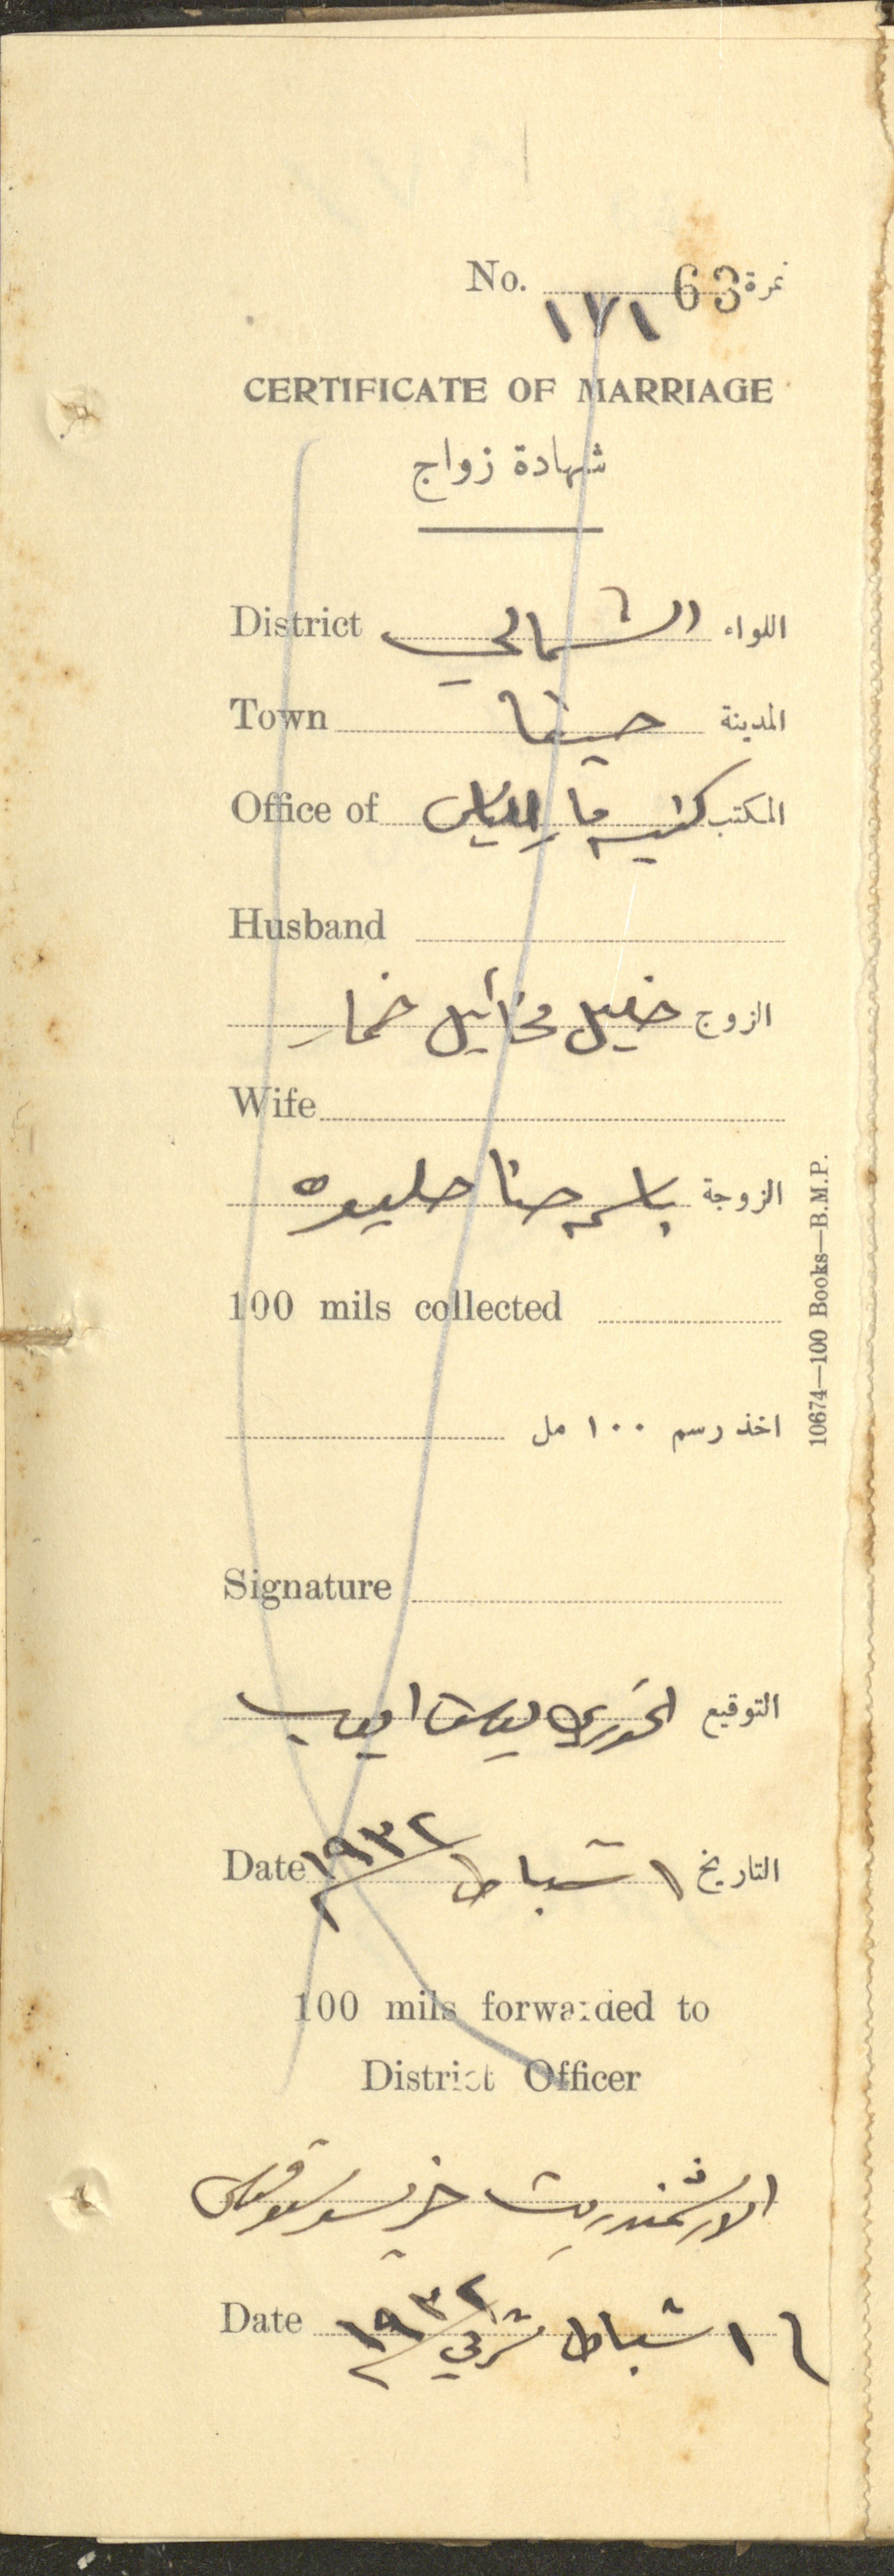 No. 63 نمرة
١٧١
CERTIFICATE OF MARRIAGE
شهادة زواج
District الشمالي اللواء
Town حيفا المدينة
Office of كنيسة مار الياس المكتب
Husband
الزوج خليل مخائيل خمار
Wife
الزوجة باسمه حنا
100 mils collected
اخذ رسم ١٠٠ مل
Signature
التوقيع الخوري ايوب
Date ١ شباط ١٩٣٢ التاريخ
100 mils forwarded to
District Officer
الارشمندريت
Date ١٦ شباط شرقي ١٩٣٢
10674—100 Books—B.M.P.